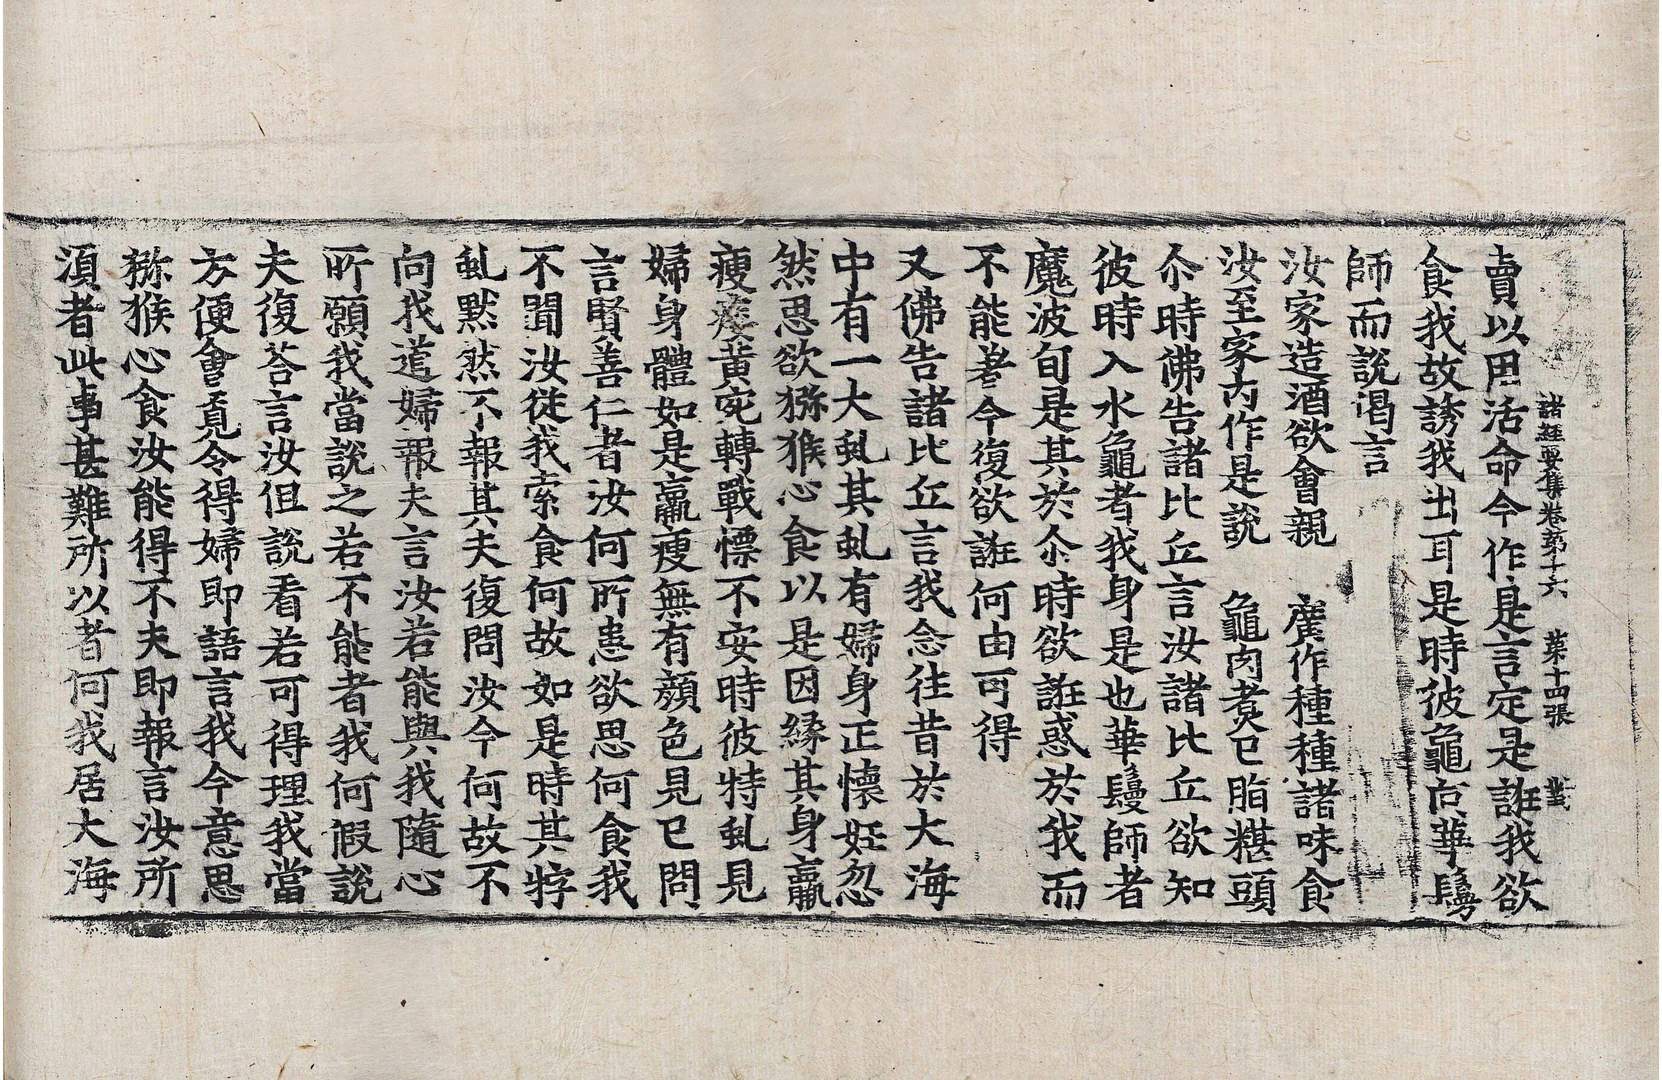 諸經要集卷第十六 第十四張
賣以用活命今作是言定是誑我欲
食我故誘我出耳是時彼龜向華鬘
師而說偈言
汝家造酒欲會親 廣作種種諸味食
汝至家內作是說 龜肉煑已脂糂頭
尒時佛告諸比丘言汝諸比丘欲知
彼時入水龜者我身是也華鬘師者
魔波旬是其於尒時欲誑惑於我而
不能著今復欲誑何由可得
又佛告諸比丘言我念往昔於大海
中有一大虬其虬有婦身正懷妊忽
然思欲獼猴心食以是因緣其身羸
瘦痿黃宛轉戰慄不安時彼特虬見
婦身體如是羸瘦無有顏色見已問
言賢善仁者汝何所患欲思何食我
不聞汝從我索食何故如是時其牸
虬默然不報其夫復問汝今何故不
向我道婦報夫言汝若能與我隨心
所願我當說之若不能者我何假說
夫復荅言汝但說看若可得理我當
方便會覓令得婦即語言我今意思
獼猴心食汝能得不夫即報言汝所
須者此事甚難所以者何我居大海